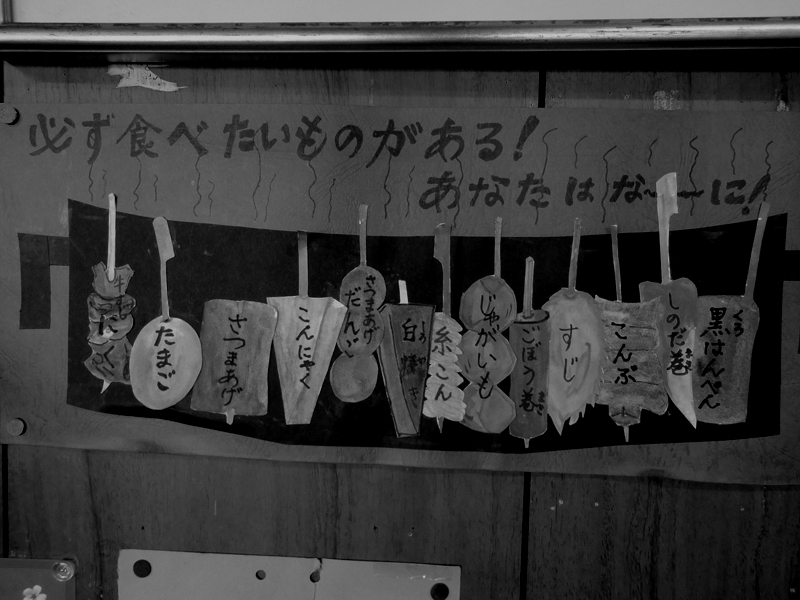 必ず食べたいものがある！
あなたはな〜〜に！
たまご
さつまあげ
こんにゃく
さつまあげ
だんご
糸こん
じゃがいも
ごぼう巻
すじ
こんぶ
しのだ巻
黒はんぺん
くろ